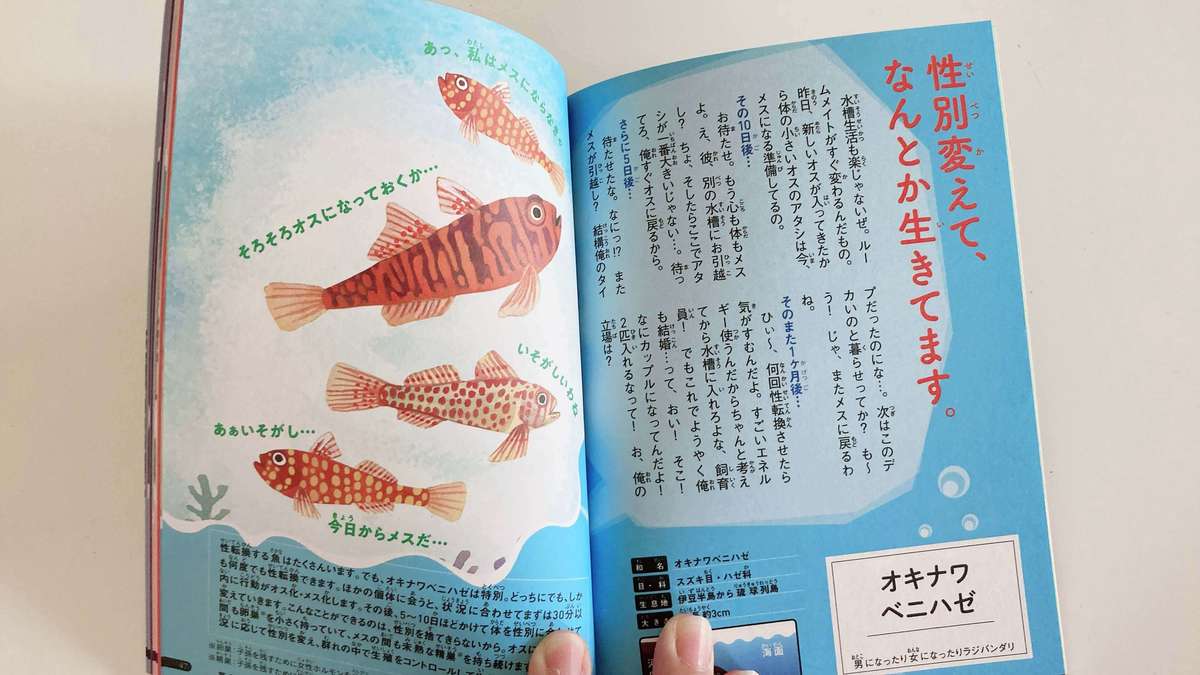 性別変えて、
なんとか生きてます。
水槽生活も楽じゃないぜ。ルー
ムメイトがすぐ変わるんだもの。
昨日、新しいオスが入ってきたか
ら体の小さいオスのアタシは今、
メスになる準備してるの。
その10日後…
お待たせ。もう心も体もメス
よ。え、彼、別の水槽にお引越
し？ ちょ、そしたらここでアタ
シが一番大きいじゃない…。待っ
てろ、俺すぐオスに戻るから。
さらに5日後…
待たせたな。なにっ!? また
メスが引越し？ 結構俺のタイ
プだったのにな…。次はこのデ
カいのと暮らせってか？ も〜
う！ じゃ、またメスに戻るわ
ね。
そのまた1ヶ月後…
ひぃ〜、何回性転換させたら
気がすむんだよ。すごいエネル
ギー使うんだからちゃんと考え
てから水槽に入れろよな、飼育
員！ でもこれでようやく俺
も結婚…って、おい！ そこ！
なにカップルになってんだよ！
2匹入れるなって！ お、俺の
立場は？
オキナワ
ベニハゼ
男になったり女になったりラジバンダリ
和名 オキナワベニハゼ
目・科 スズキ目・ハゼ科
生息地 伊豆半島から琉球列島
大きさ 約3cm
海面
あっ、私はメスにならなきゃ
そろそろオスになっておくか…
いそがしいわね
あぁいそがし…
今日からメスだ…
性転換する魚はたくさんいます。でも、オキナワベニハゼは特別。どっちにでも、しか
も何度でも性転換できます。ほかの個体に会うと、状況に合わせてまずは30分以
内に行動がオス化・メス化します。その後、5〜10日ほどかけて体を性別に合わせて
変えていきます。こんなことができるのは、性別を捨てきらないから。オスに
間も卵巣を小さく持っていて、メスの間も未熟な精巣を持ち続けます
況に応じて性別を変え、群れの中で生殖をコントロール
※卵巣：子孫を残すために女性ホルモン
※精巣：子孫を残すために